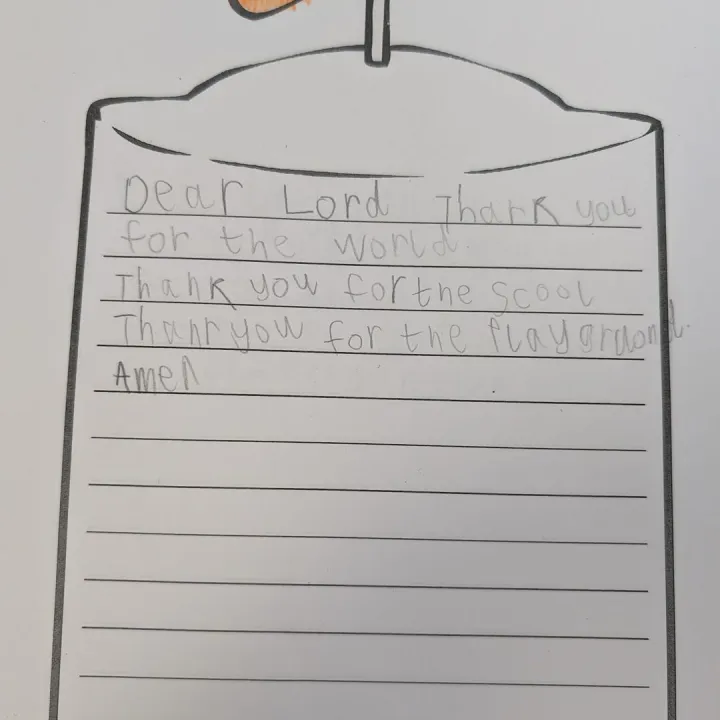 Dear Lord Thank you
for the world.
Thank you for the scool
Thanr you for the playgraond.
Amen